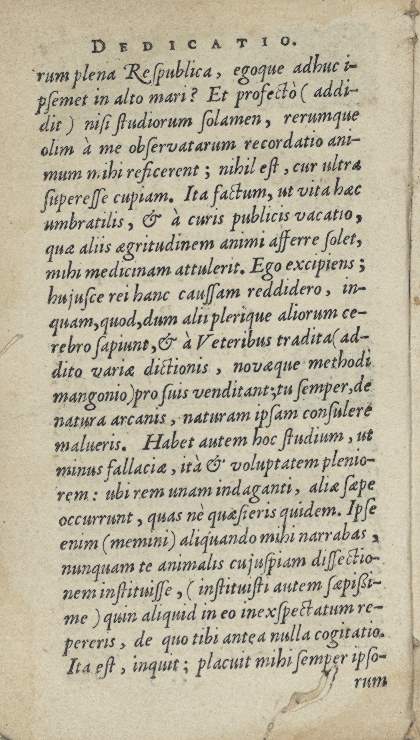 DEDICATIO.
rum plena Reſpublica, egoque adhuc i-
pſemet in alto mari? Et profectò (addi-
dit) niſi ſtudiorum ſolamen, rerumque
olim à me obſervatarum recordatio ani-
mum mihi reficerent; nihil eſt, cur ultra
ſupereſſe cupiam. Ita factum, ut vita hæc
umbratilis, & à curis publicis vacatio,
quæ aliis ægritudinem animi afferre ſolet,
mihi medicinam attulerit. Ego excipiens;
hujuſce rei hanc cauſſam reddidero, in-
quam, quod, dum alii plerique aliorum ce-
rebro ſapiunt, & à Veteribus tradita (ad-
dito variæ dictionis, novæque methodi
mangonio) pro ſuis venditant; tu ſemper, de
natura arcanis, naturam ipſam conſulere
malueris. Habet autem hoc ſtudium, ut
minus fallaciæ, ità & voluptatem plenio-
rem: ubi rem unam indaganti, aliæ ſæpe
occurrunt, quas nè quæſieris quidem. Ipſe
enim (memini) aliquando mihi narrabas,
nunquam te animalis cujuſpiam diſſectio-
nem inſtituiſſe, (inſtituiſti autem ſæpiſſi-
me) quin aliquid in eo inexſpectatum re-
pereris, de quo tibi antea nulla cogitatio.
Ita eſt, inquit; placuit mihi ſemper ipſo-
rum